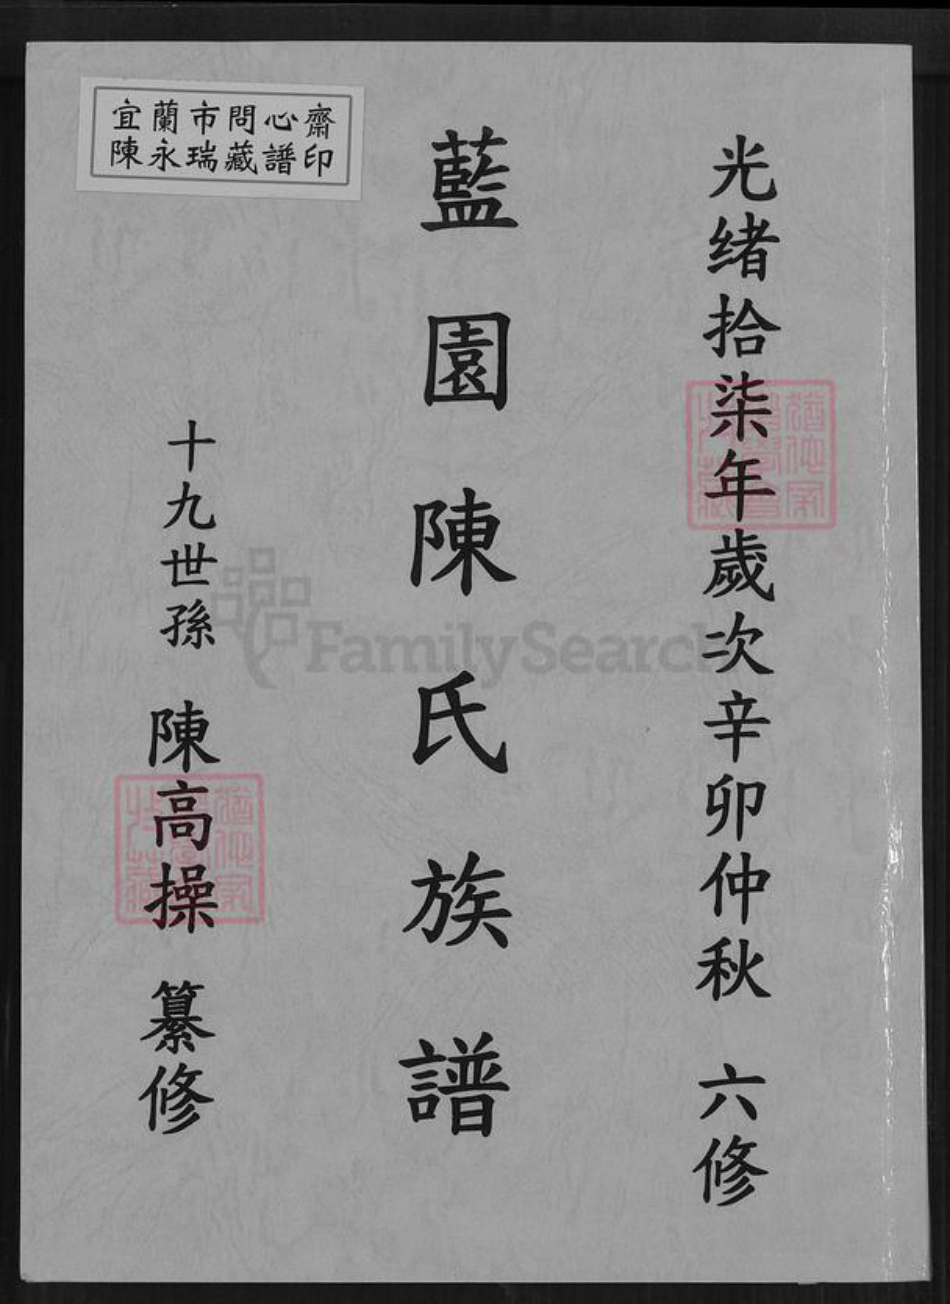 光绪拾柒年歲次辛卯仲秋 六修
藍園陳氏族譜
十九世孫 陳高操 纂修
宜蘭市問心齋
陳永瑞藏譜印
FamilySearch